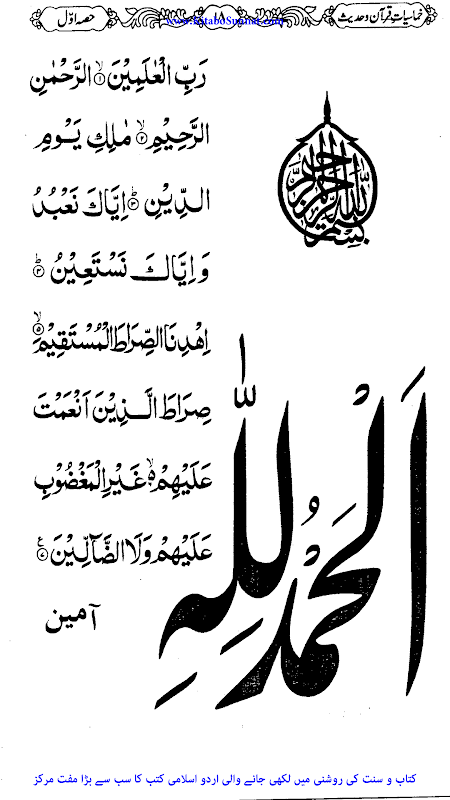 خماسیات قرآن و حدیث ۱۸ حصہ اوّل
www.KitaboSunnat.com
بِسْمِ اللّٰهِ الرَّحْمٰنِ الرَّحِيْمِ
اَلْحَمْدُ لِلّٰهِ
رَبِّ الْعٰلَمِيْنَ ۙ﴿۱﴾ الرَّحْمٰنِ
الرَّحِيْمِ ۙ﴿۲﴾ مٰلِكِ يَوْمِ
الدِّيْنِ ؕ﴿۳﴾ اِيَّاكَ نَعْبُدُ
وَ اِيَّاكَ نَسْتَعِيْنُ ؕ﴿۴﴾
اِهْدِنَا الصِّرَاطَ الْمُسْتَقِيْمَ ۙ﴿۵﴾
صِرَاطَ الَّذِيْنَ اَنْعَمْتَ
عَلَيْهِمْ ۙ۬﴿۶﴾ غَيْرِ الْمَغْضُوْبِ
عَلَيْهِمْ وَلَا الضَّآلِّيْنَ ﴿۷﴾ ع
آمین
کتاب و سنت کی روشنی میں لکھی جانے والی اردو اسلامی کتب کا سب سے بڑا مفت مرکز